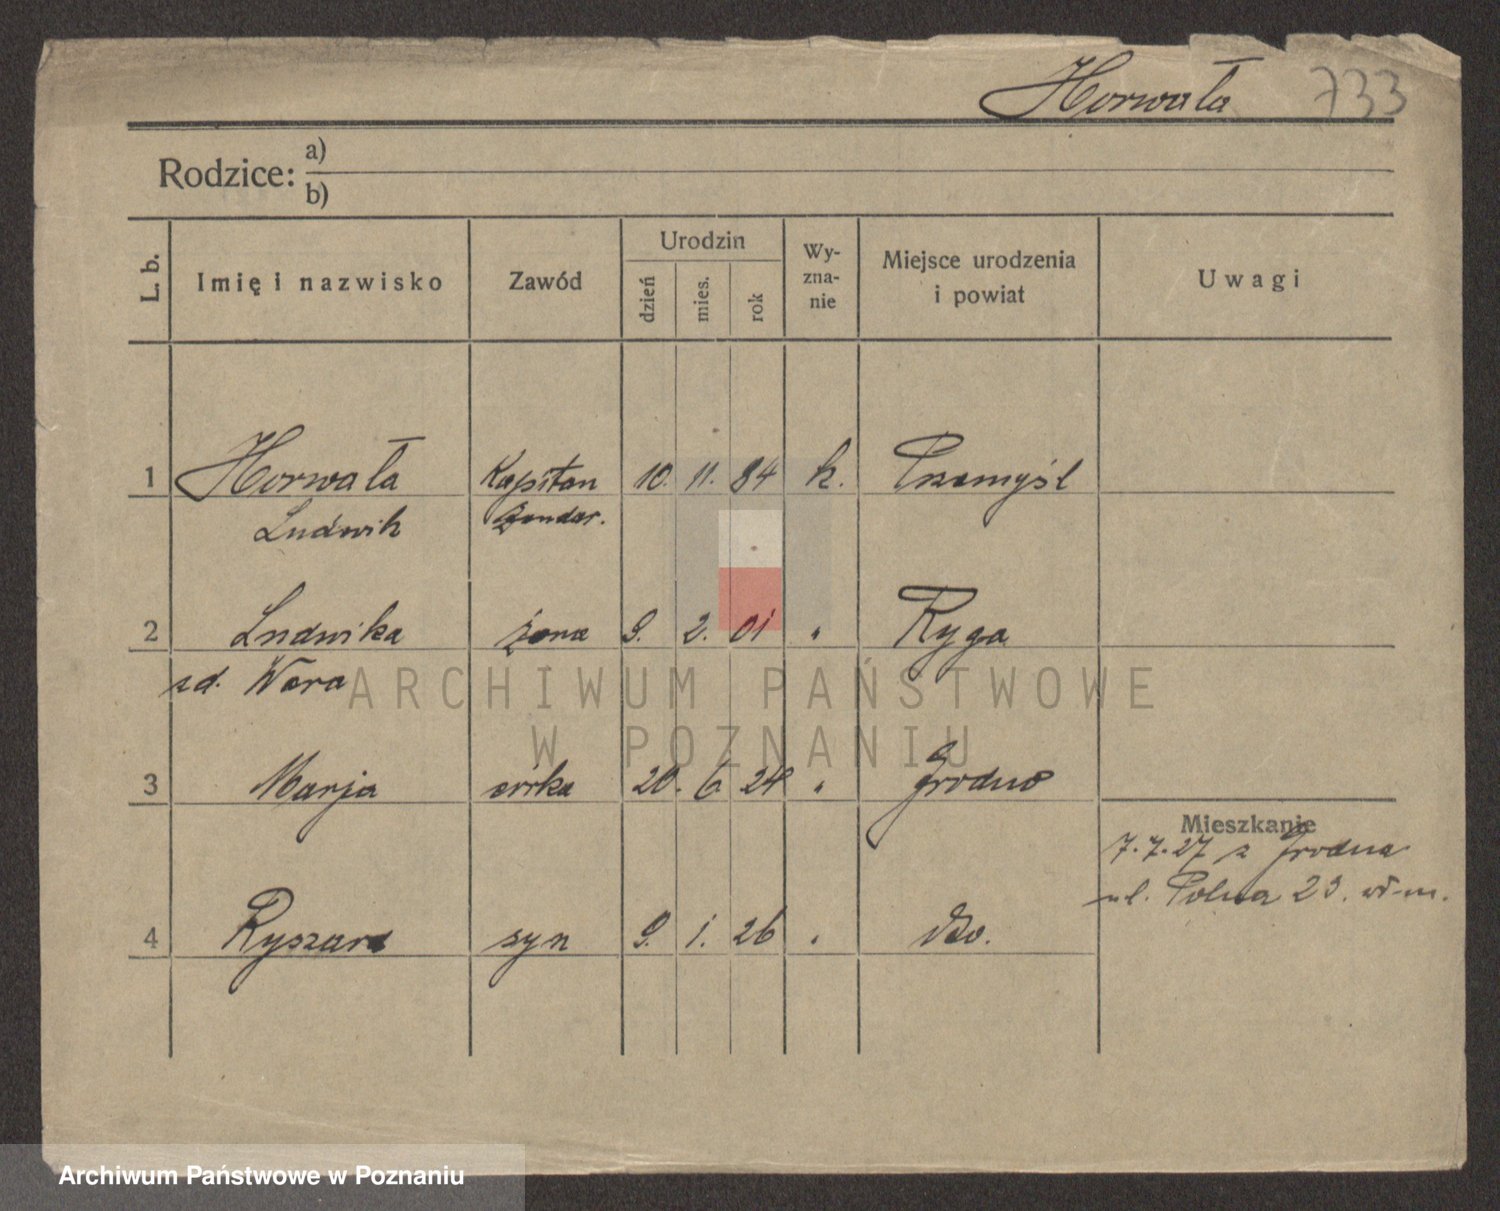 Horwała 733
Rodzice: a)
b)
L. b. Imię i nazwisko Zawód Urodzin dzień mies. rok Wy-zna-nie Miejsce urodzenia i powiat Uwagi
1 Horwała Kapitan 10. 11. 84 k. Przemyśl
Ludwik żandar.
2 Ludwika żona 9. 2. 01 " Ryga
zd. Wera
3 Marja córka 20. 6 24 " Grodno
Mieszkanie
7.7.27 z Grodna
ul. Polna 23.
4 Ryszard syn 9. 1. 26 " dto.
ARCHIWUM PAŃSTWOWE
W POZNANIU
Archiwum Państwowe w Poznaniu